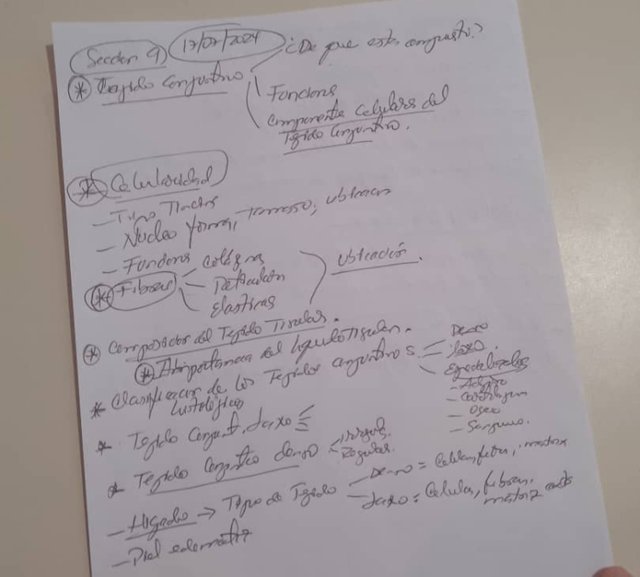 Seccion 9 17/07/2024 ¿De que esta compuesto?
* Tejido Conjuntivo
Funciones
Componentes Celulares del
Tejido Conjuntivo.
* Celularidad
- Tipo
- Nucleo forma, Tamaso, ubicacion
- Funciones
* Fibras Colágenas
Reticulares
Elasticas
ubicación.
* Composicion del Tejido Tisular.
* Importancia del liquido Tisular.
* Clasificacion de los Tejidos conjuntivos Denso
histológico Laxo.
Especializados
- Adiposo
- Cartilagem
- Oseo
- Sanguineo.
* Tejido Conjunt. Laxo
* Tejido Conjuntivo denso Irregular
Regular.
- Higado → Tipo de Tejido Denso = Celulas, fibra, matriz
Laxo = Celulas, fibras,
matriz
- Piel